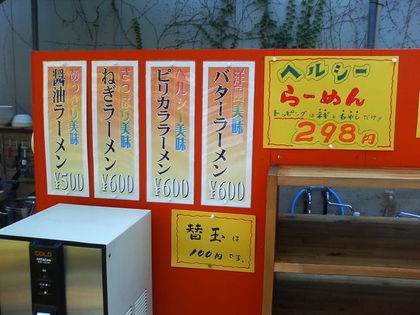 あっさり美味
醤油ラーメン
¥500
さっぱり美味
ねぎラーメン
¥600
ヘルシー美味
ピリカララーメン
¥600
洋風美味
バターラーメン
¥600
ヘルシー
らーめん
トッピングはネギともやしだけ!!
298円
替玉は
100円です。
COLD